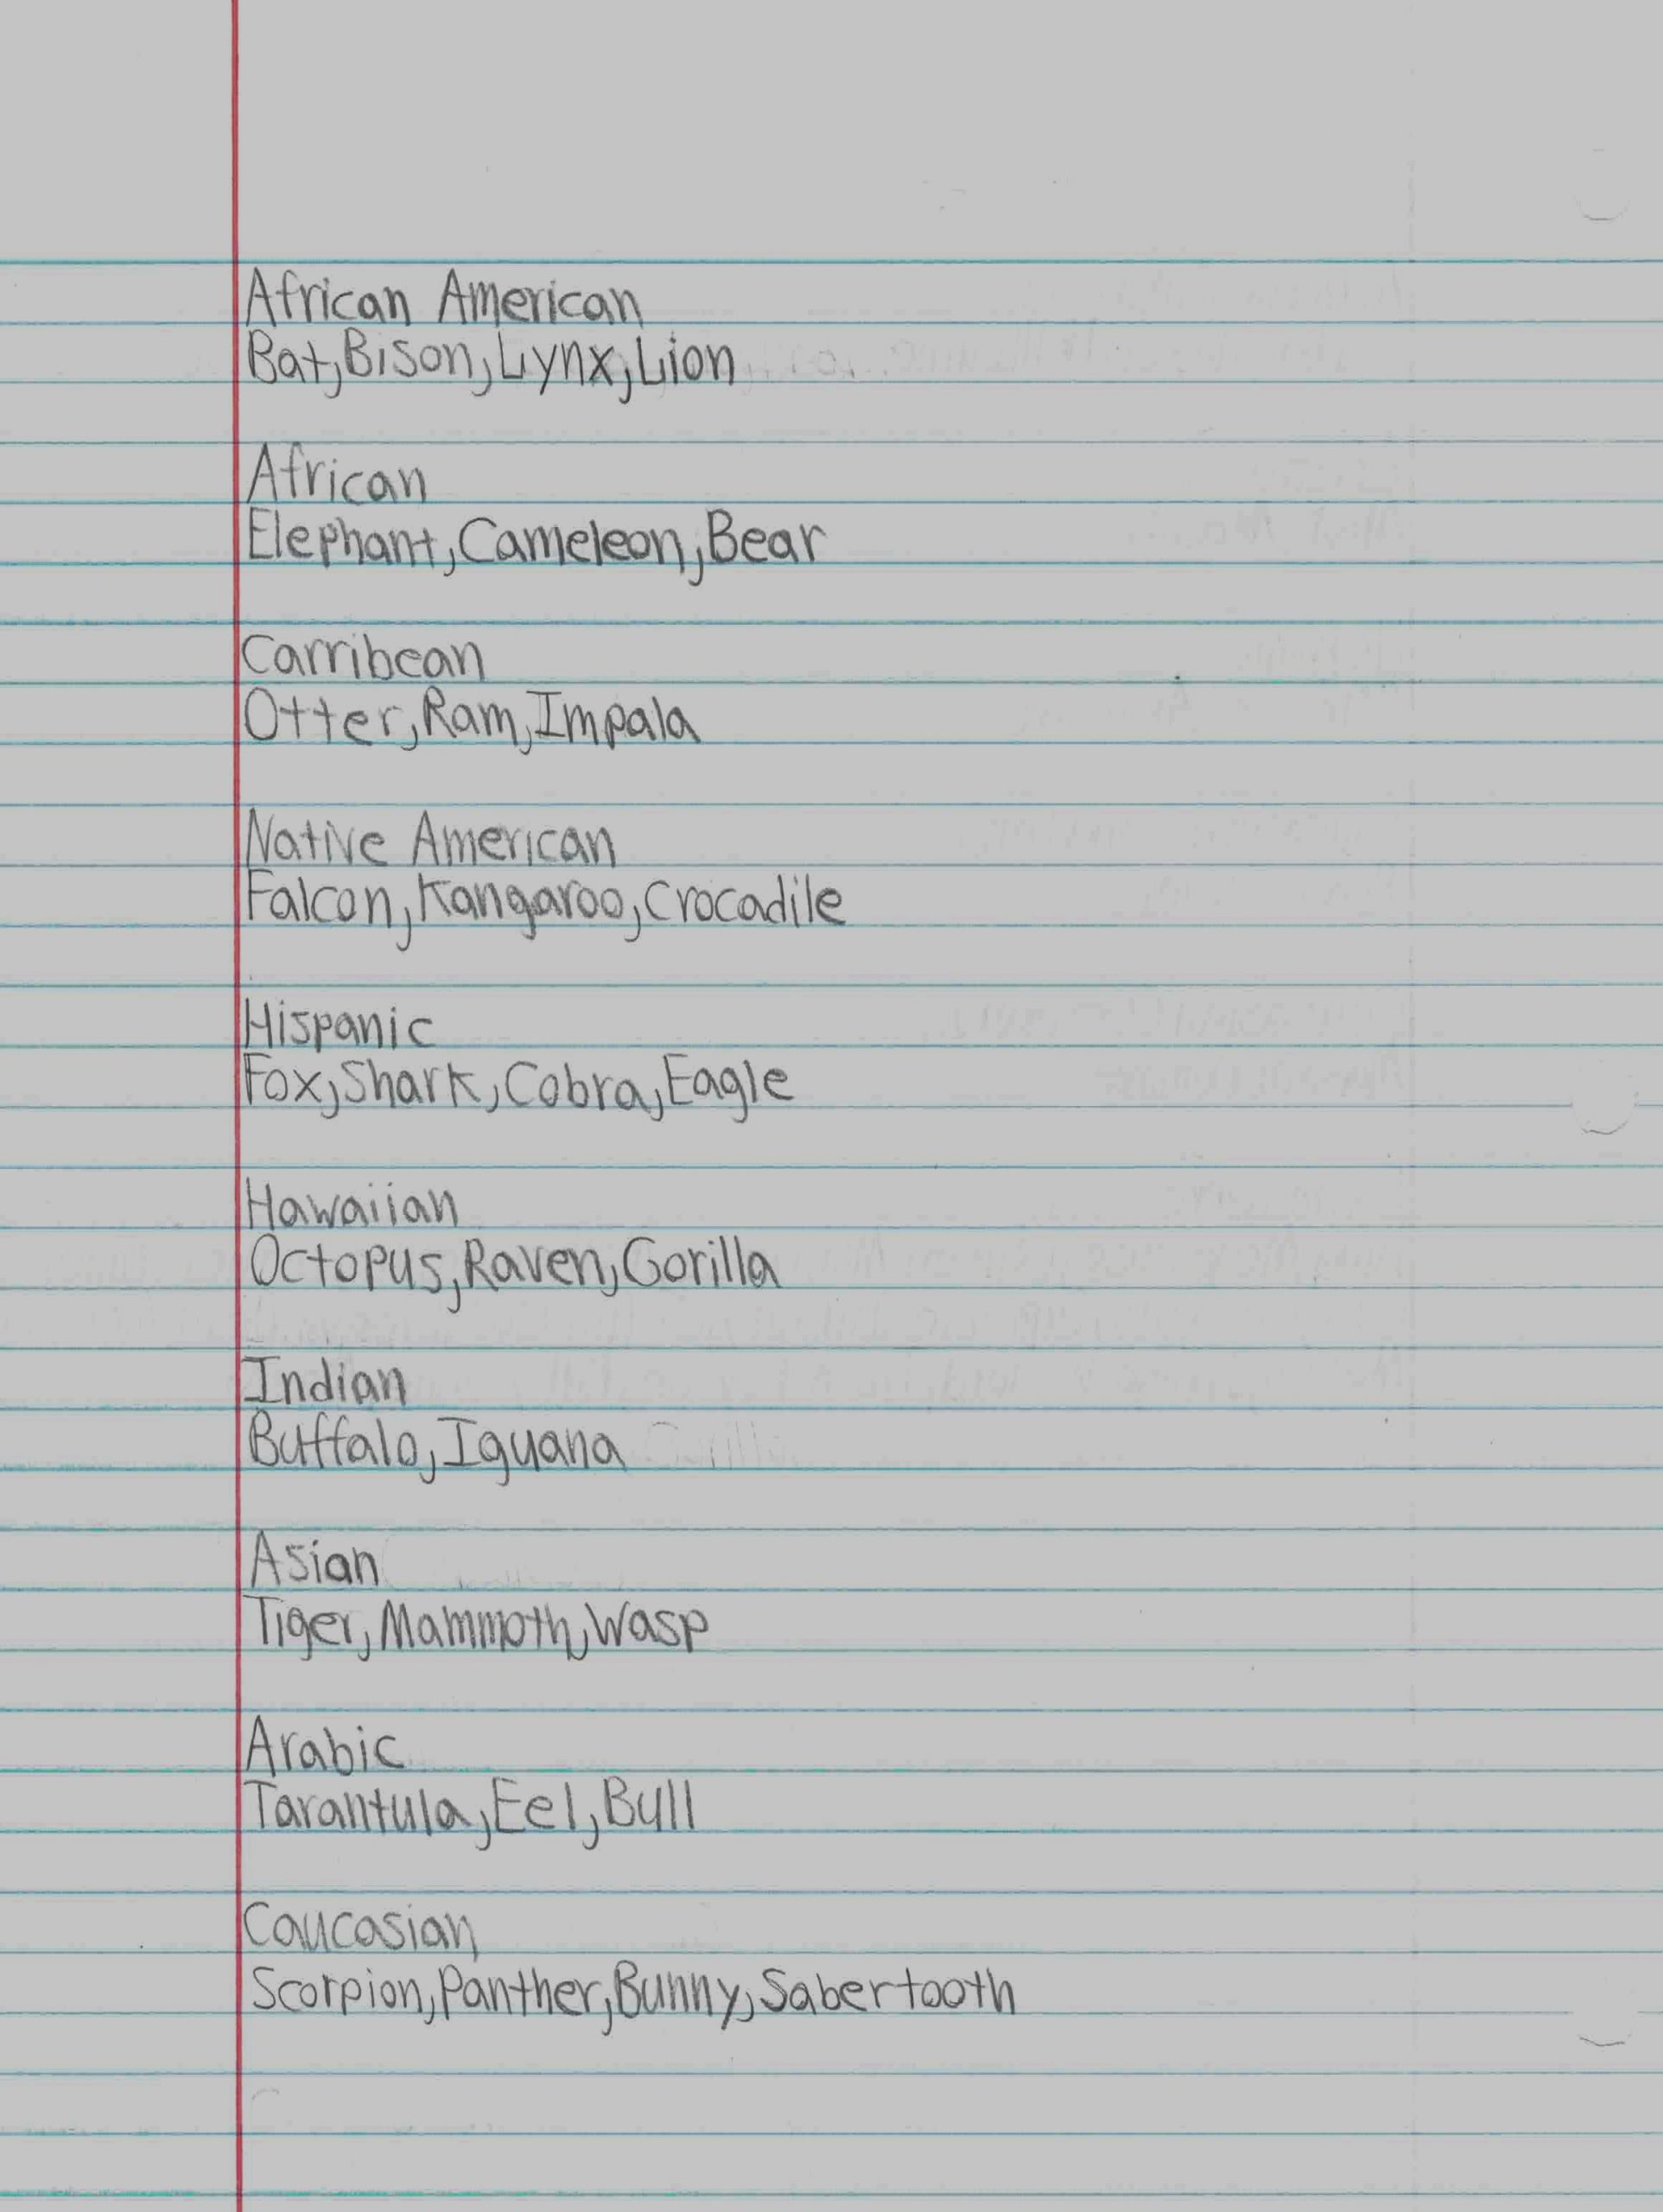 African American
Bat,Bison,Lynx,Lion
African
Elephant,Cameleon,Bear
Carribean
Otter,Ram,Impala
Native American
Falcon,Kangaroo,Crocadile
Hispanic
Fox,Shark,Cobra,Eagle
Hawaiian
Octopus,Raven,Gorilla
Indian
Buffalo,Iguana
Asian
Tiger,Mammoth,Wasp
Arabic
Tarantula,Eel,Bull
Caucasian
Scorpion,Panther,Bunny,Sabertooth